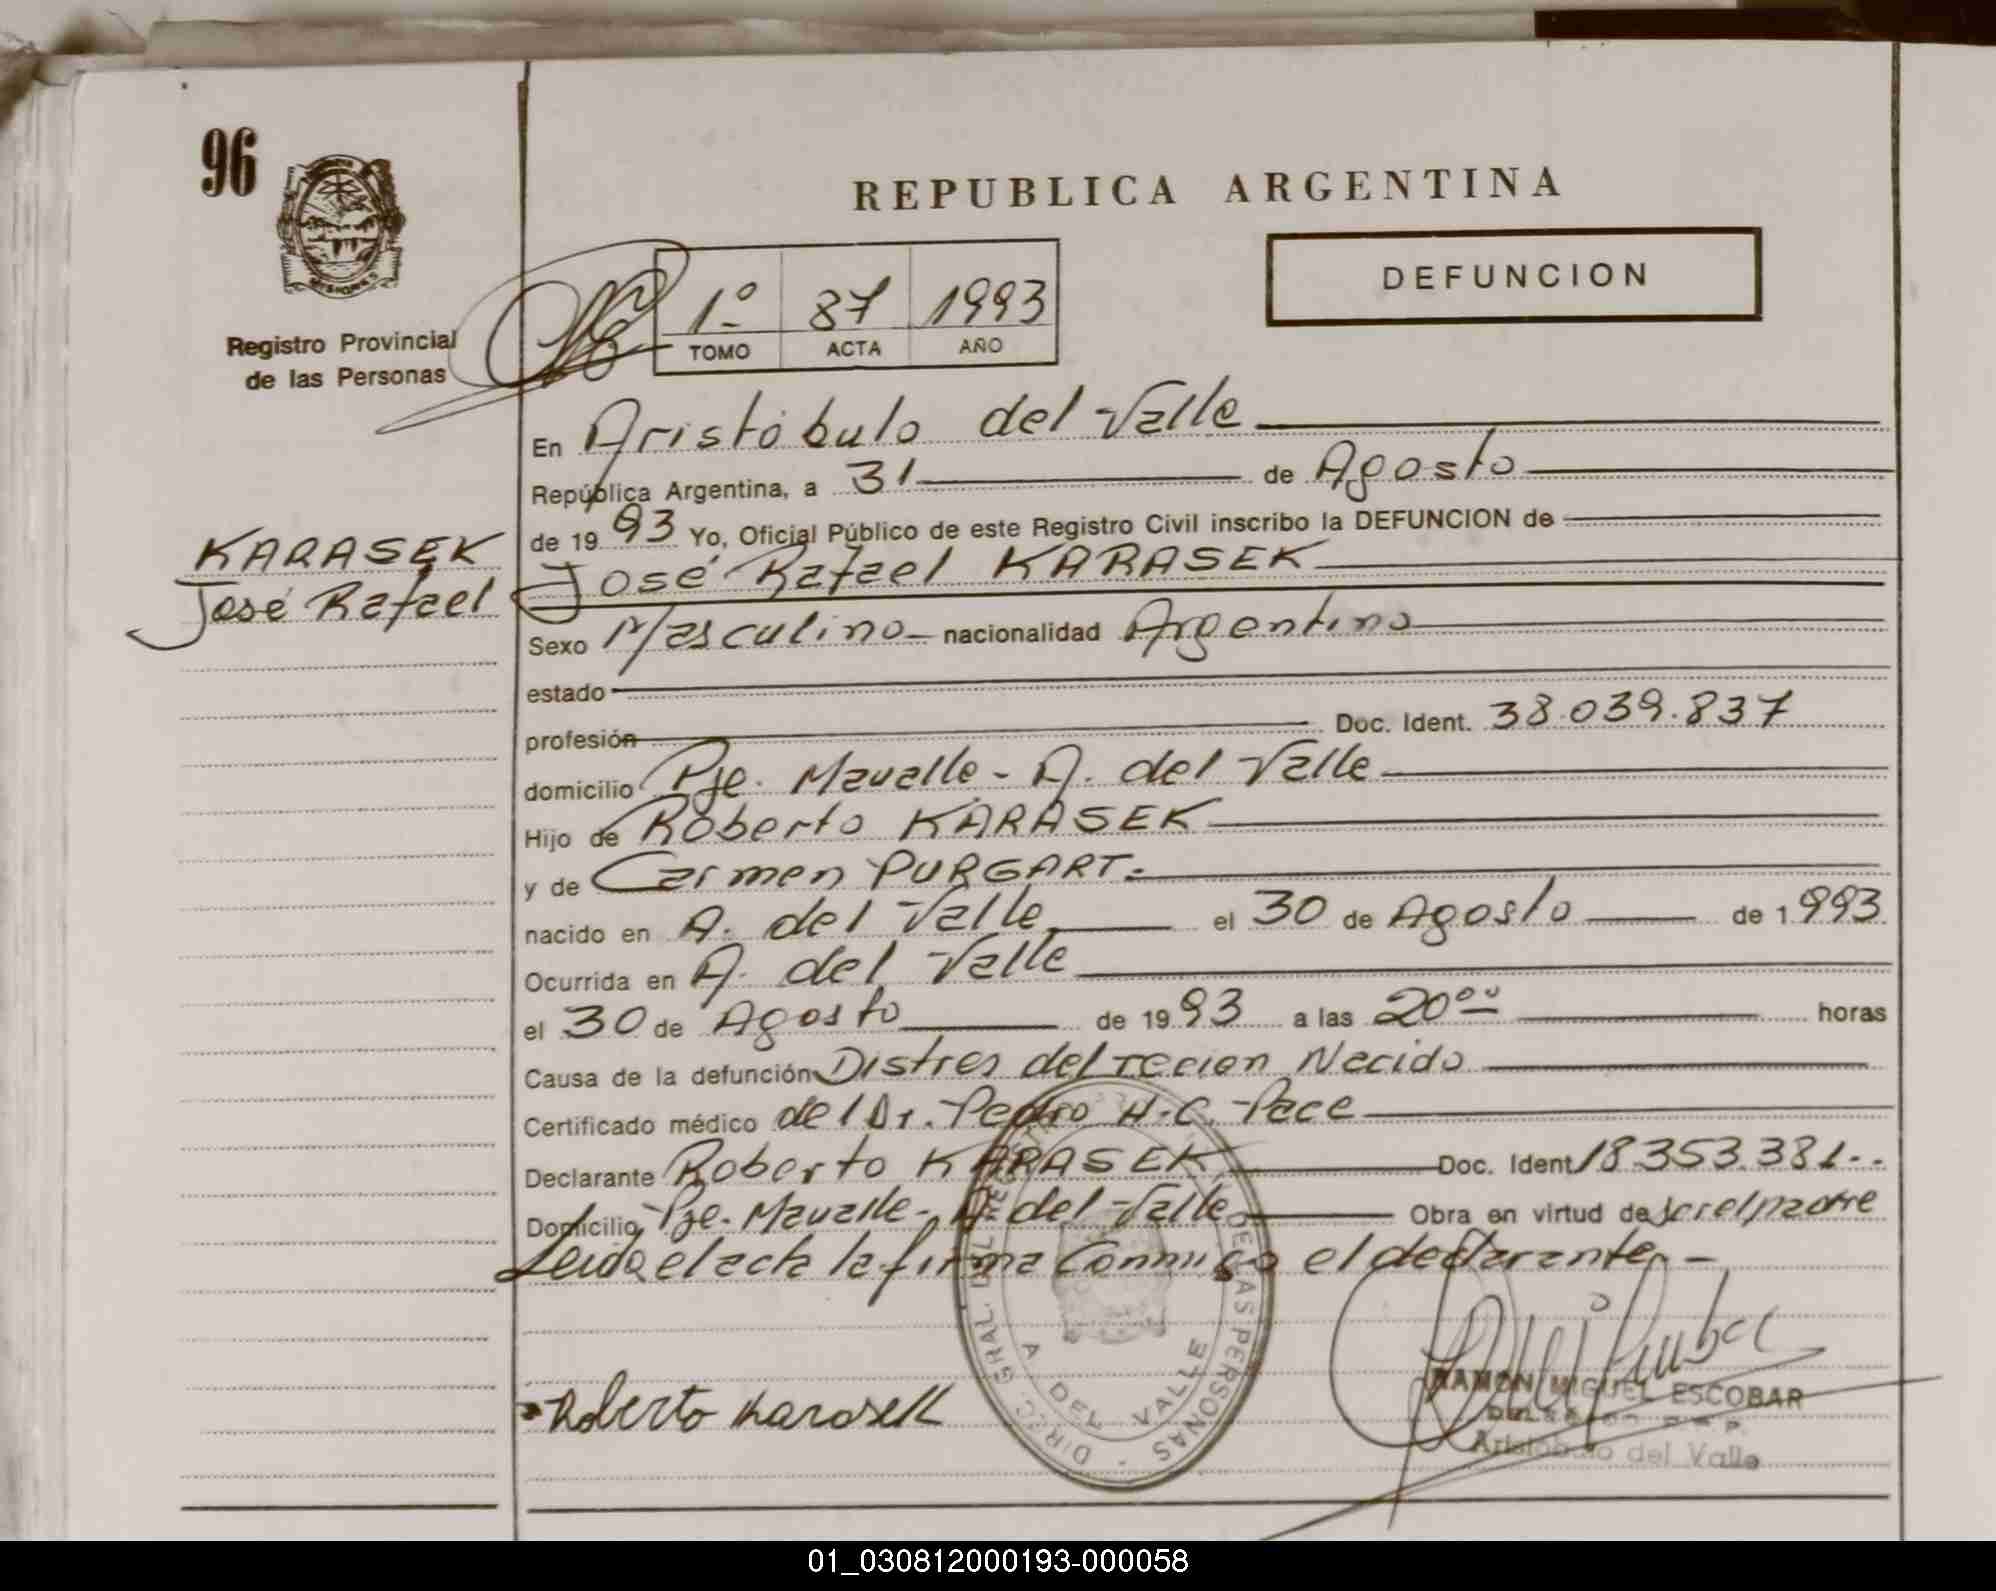 96
MISIONES
Registro Provincial
de las Personas
KARASEK
José Rafael
REPUBLICA ARGENTINA
DEFUNCION
1º 87 1993
TOMO ACTA AÑO
En Aristóbulo del Valle
República Argentina, a 31 de Agosto
de 19 93 Yo, Oficial Público de este Registro Civil inscribo la DEFUNCION de
José Rafael KARASEK
Sexo Masculino nacionalidad Argentino
estado
profesión Doc. Ident. 38.039.837
domicilio Pje. Mavalle - A. del Valle
Hijo de Roberto KARASEK
y de Carmen PURGART.
nacido en A. del Valle el 30 de Agosto de 1 993
Ocurrida en A. del Valle
el 30 de Agosto de 19 93 a las 20ºº horas
Causa de la defunción Distres del recien Nacido
Certificado médico del Dr. Pedro H. C. Pace
Declarante Roberto KARASEK Doc. Ident 18.353.381..
Domicilio Pje. Mavalle - A. del Valle Obra en virtud de ser el padre
Leida el acta la firma Conmigo el declarante. -
DIREC. GRAL. DEL REGISTRO DE LAS PERSONAS
A DEL VALLE
Roberto Karasek
RAMON MIGUEL ESCOBAR
Aristóbulo del Valle
01_030812000193-000058